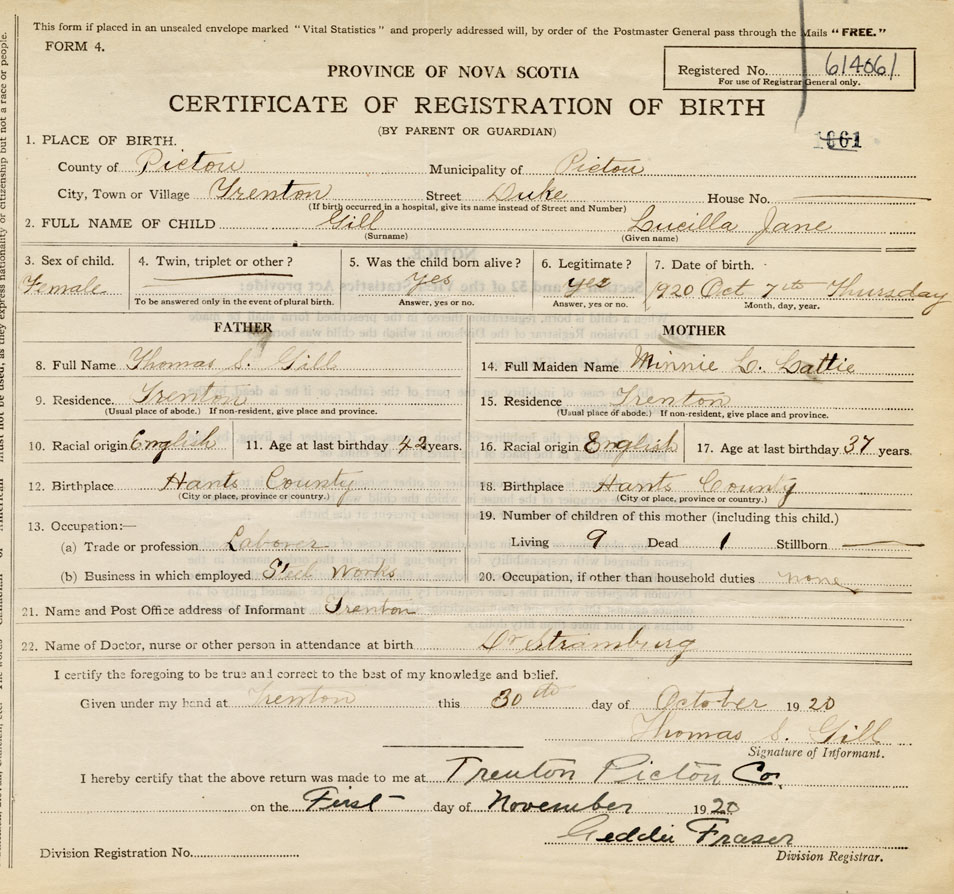 This form if placed in an unsealed envelope marked "Vital Statistics" and properly addressed will, by order of the Postmaster General pass through the Mails "FREE."
FORM 4.
Registered No. 614061
For use of Registrar General only.
PROVINCE OF NOVA SCOTIA
CERTIFICATE OF REGISTRATION OF BIRTH
(BY PARENT OR GUARDIAN)
1661
1. PLACE OF BIRTH.
County of Pictou Municipality of Pictou
City, Town or Village Trenton Street Duke House No.
(If birth occurred in a hospital, give its name instead of Street and Number)
2. FULL NAME OF CHILD Gill Lucilla Jane
(Surname) (Given name)
3. Sex of child. 4. Twin, triplet or other? 5. Was the child born alive? 6. Legitimate? 7. Date of birth.
Female Yes yes 1920 Oct 7th Thursday
To be answered only in the event of plural birth. Answer, yes or no. Answer, yes or no. Month, day, year.
FATHER MOTHER
8. Full Name Thomas S. Gill 14. Full Maiden Name Minnie L. Lattie
9. Residence. Trenton 15. Residence Trenton
(Usual place of abode.) If non-resident, give place and province. (Usual place of abode.) If non-resident, give place and province.
10. Racial origin English 11. Age at last birthday 42 years. 16. Racial origin English 17. Age at last birthday 37 years.
12. Birthplace Hants County 18. Birthplace Hants County
(City or place, province or country.) (City or place, province or country.)
13. Occupation:— 19. Number of children of this mother (including this child.)
(a) Trade or profession Laborer Living 9 Dead 1 Stillborn
(b) Business in which employed Steel Works 20. Occupation, if other than household duties none
21. Name and Post Office address of Informant Trenton
22. Name of Doctor, nurse or other person in attendance at birth Dr Stramburg
I certify the foregoing to be true and correct to the best of my knowledge and belief.
Given under my hand at Trenton this 30th day of October 1920
Thomas S. Gill
Signature of Informant.
I hereby certify that the above return was made to me at Trenton Pictou Co.
on the First day of November 1920
Geddie Fraser
Division Registrar.
Division Registration No.